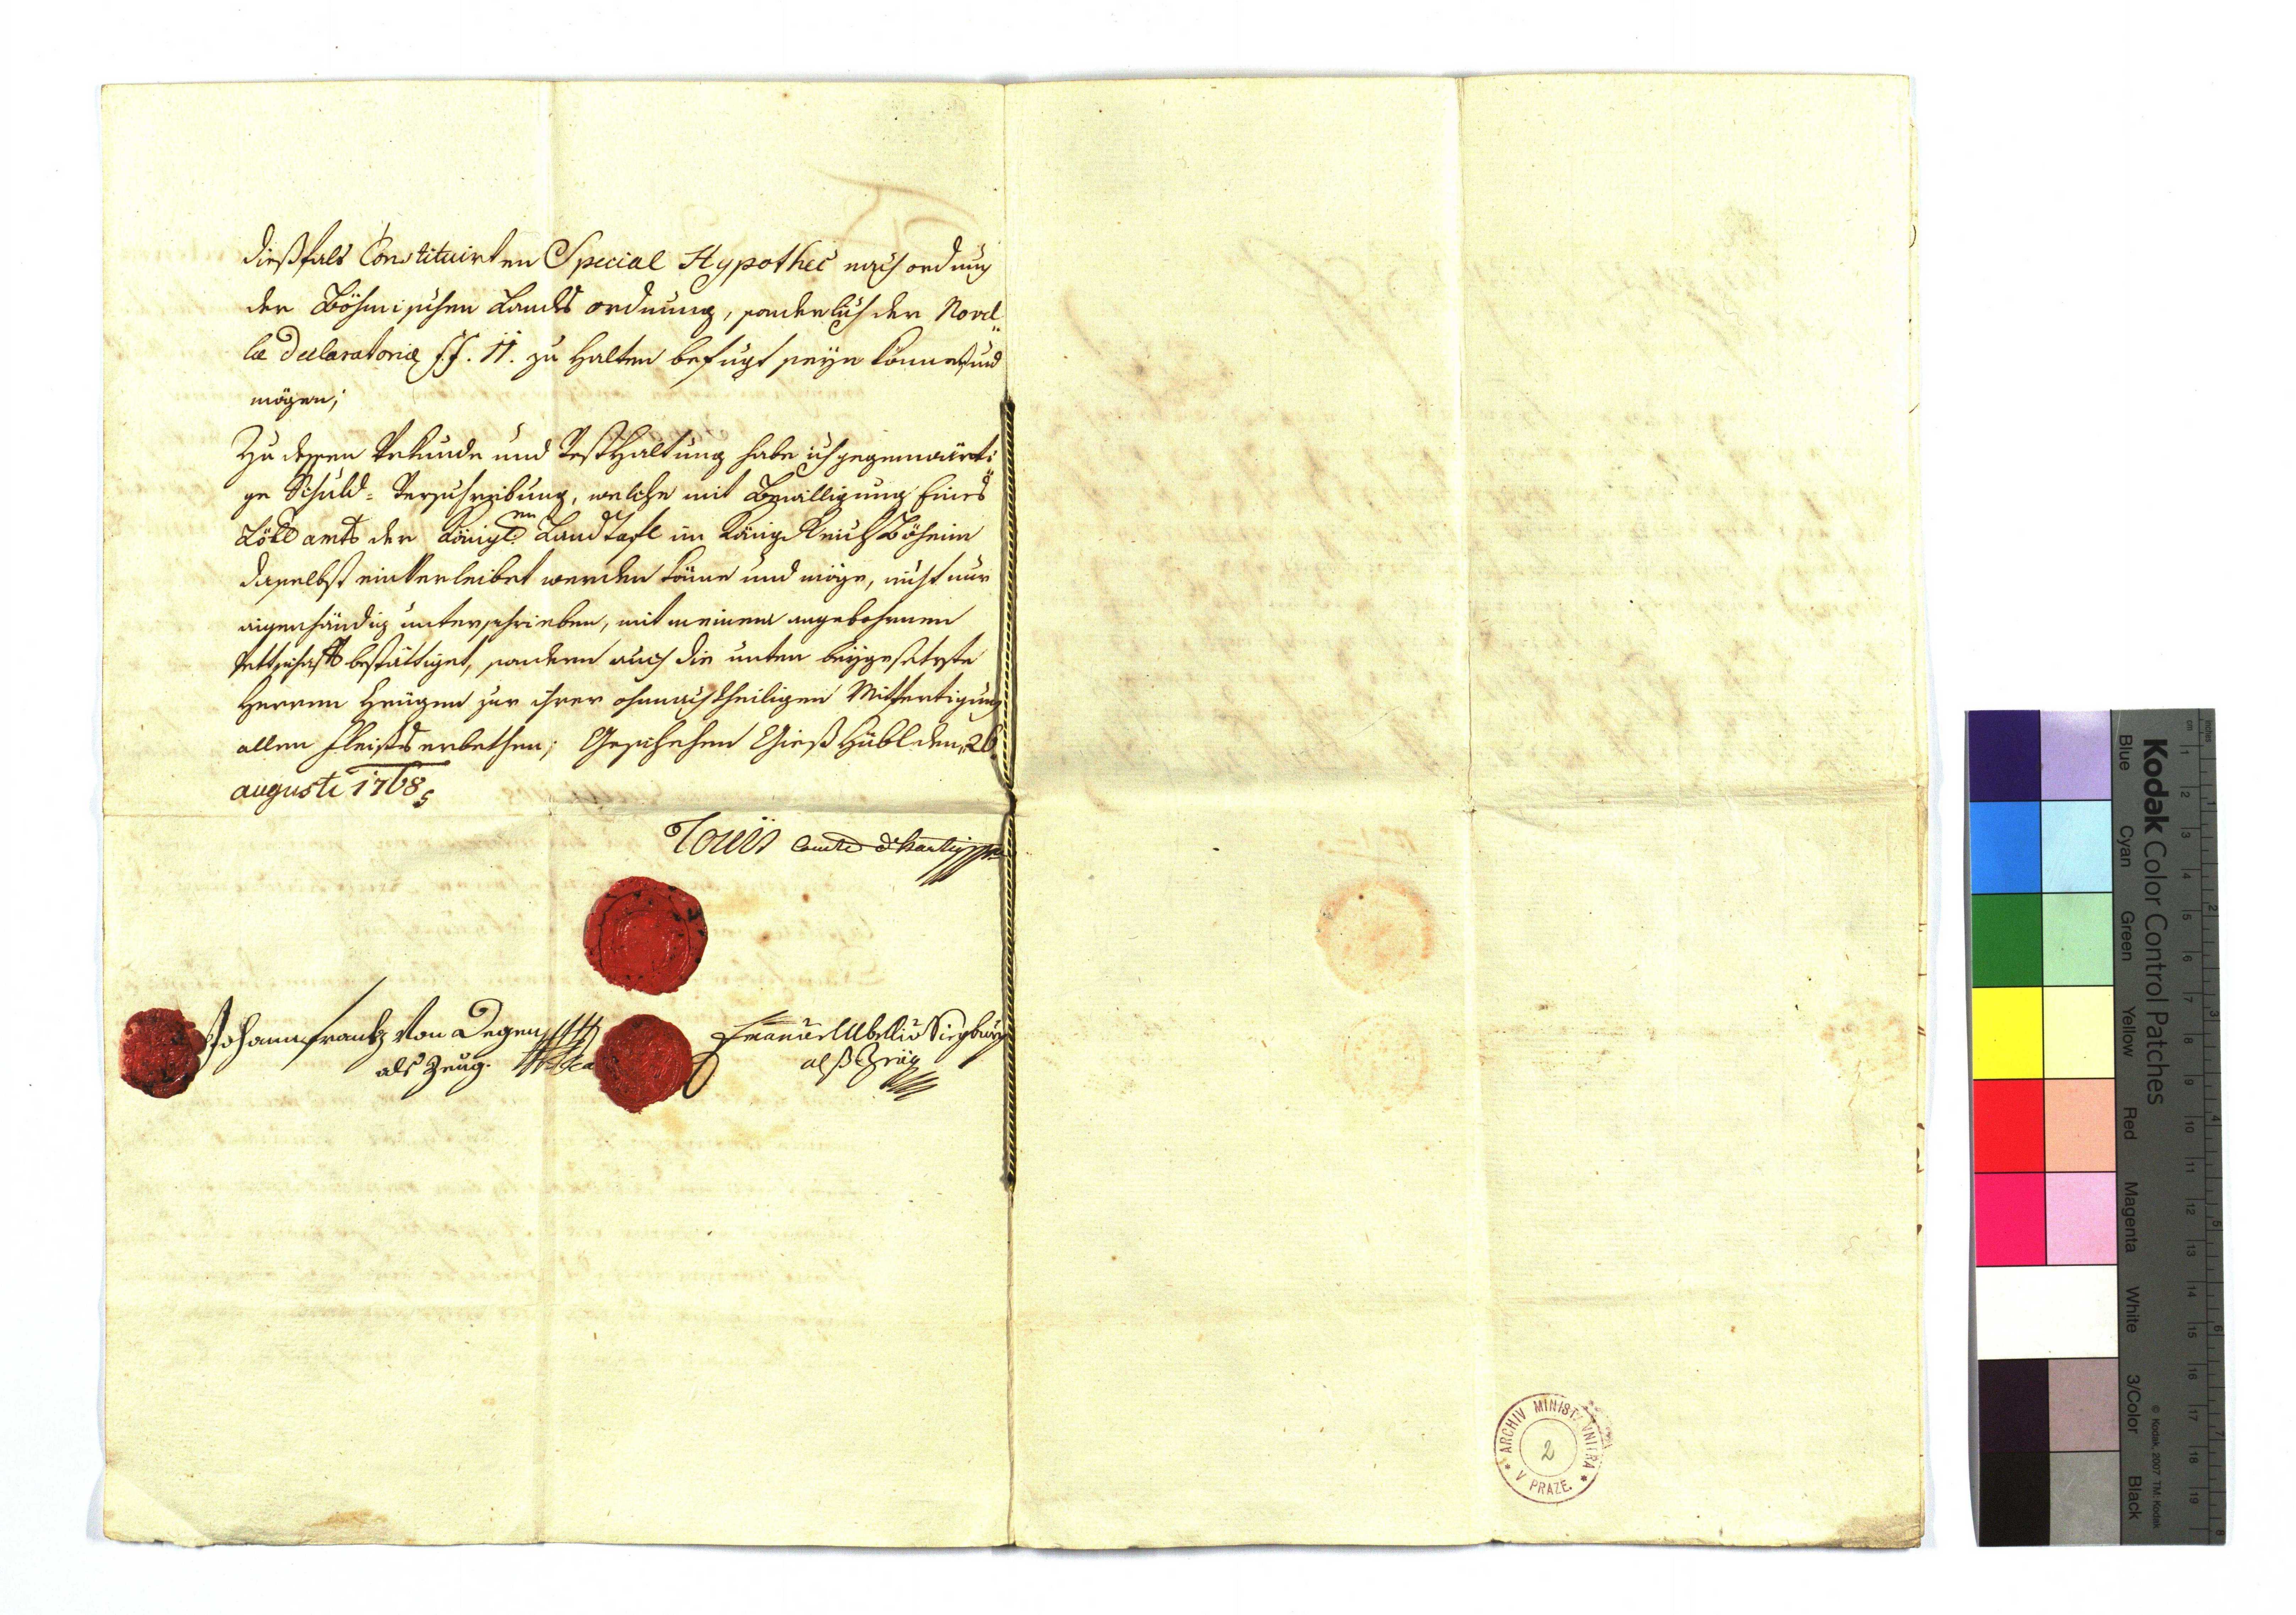 dießfals Constituirten Special Hypothec nach ordnung
der Böhmischen Lands ordnung, sonderlich der Novel„
læ declaratoriæ ff. 11. zu halten befugt seyn könne, und
mögen;
Zu dessen Urkunde und Festhaltung habe ich gegenwärti„
ge Schuld=Verschreibung, welche mit Bewilligung Eines
Löbl amts der Königlen Landtafl im Königreich Böheim
daselbst einverleibet werden könne und möge, nicht nur
eigenhändig unterschrieben, mit meinem angebohrnen
Pettschaft bestättiget, sondern auch die unten beygesetzte
Herren Zeugen zur ihrer ohnnachtheiligen Mitfertigung
allen Fleißes erbethen; Geschehen Gießhübl den 26
augusti 1768
Louis comte d'hartig
Johann frantz Von Degen
als Zeug.
Emanuel
alß Zeüg
ARCHIV MINIST. VNITRA
V PRAZE.
2
Kodak Color Control Patches
Blue Cyan Green Yellow Red Magenta White 3/Color Black
© Kodak, 2007 TM: Kodak
inches 1 2 3 4 5 6 7 8
cm 1 2 3 4 5 6 7 8 9 10 11 12 13 14 15 16 17 18 19